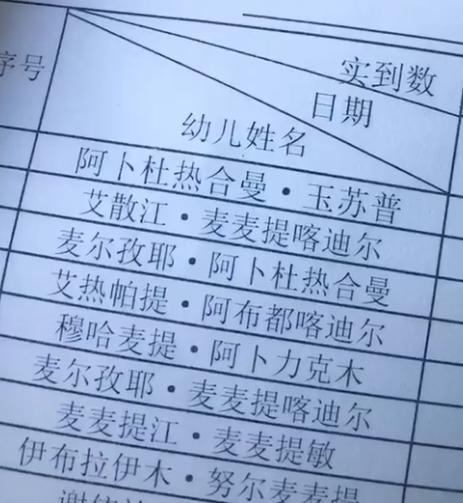 序号
实到数
日期
幼儿姓名
阿卜杜热合曼·玉苏普
艾散江·麦麦提喀迪尔
麦尔孜耶·阿卜杜热合曼
艾热帕提·阿布都喀迪尔
穆哈麦提·阿卜力克木
麦尔孜耶·麦麦提喀迪尔
麦麦提江·麦麦提敏
伊布拉伊木·努尔麦麦提